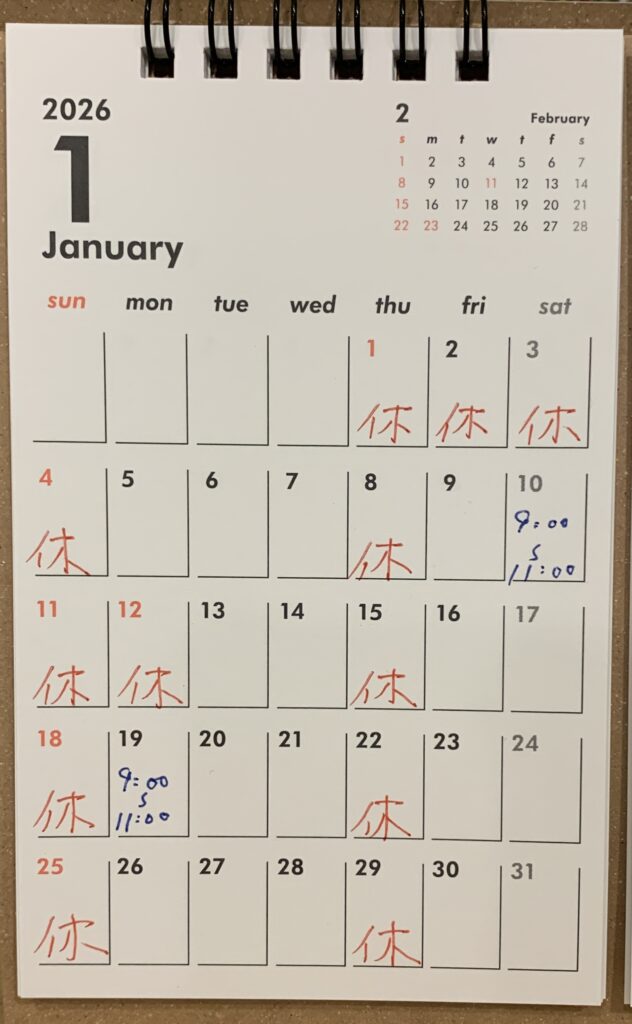 2026
1
January
2 February
s m t w t f s
1 2 3 4 5 6 7
8 9 10 11 12 13 14
15 16 17 18 19 20 21
22 23 24 25 26 27 28
sun mon tue wed thu fri sat
1 2 3
休 休 休
4 5 6 7 8 9 10
9:00
〜
11:00
休 休
11 12 13 14 15 16 17
休 休 休
18 19 20 21 22 23 24
9:00
〜
11:00
休 休
25 26 27 28 29 30 31
休 休